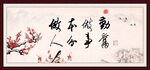 勤奮
做事
本分
做人